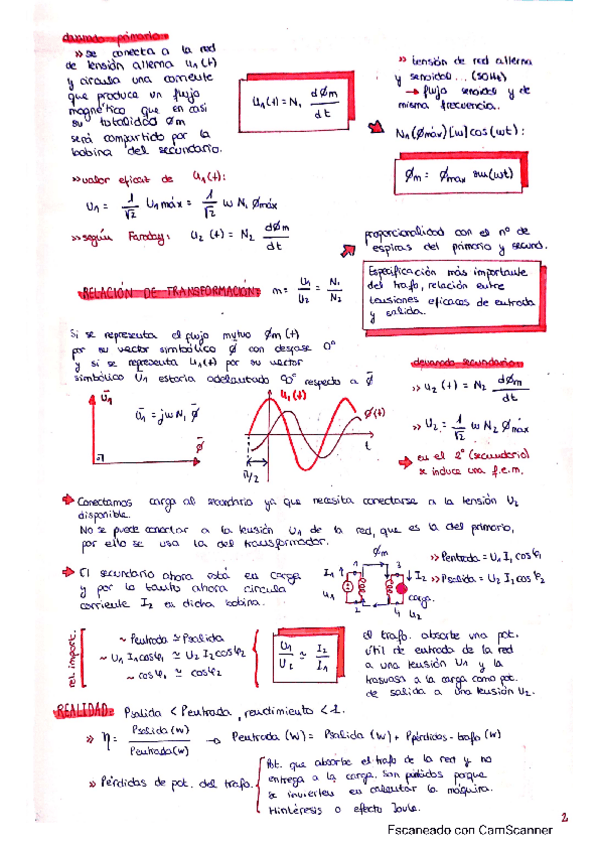 devanado primario
» se conecta a la red
de tensión alterna u₁(t)
y circula una corriente
que produce un flujo
magnético que en casi
su totalidad Øm
será compartido por la
bobina del secundario.
u₁(t) = N₁ dØm/dt
» tensión de red alterna
y senoidal... (50Hz)
→ flujo senoidal y de
misma frecuencia.
N₁(Ømáx)[w]cos(wt):
Øm = Ømax sen(wt)
» valor eficaz de u₁(t):
U₁ = 1/√2 U₁máx = 1/√2 w N₁ Ømáx
» según Faraday: u₂(t) = N₂ dØm/dt
proporcionalidad con el nº de
espiras del primario y secund.
RELACIÓN DE TRANSFORMACIÓN: m = U₁/U₂ = N₁/N₂
Especificación más importante
del trafo, relación entre
tensiones eficaces de entrada
y salida.
Si se representa el flujo mutuo Øm(t)
por su vector simbólico Ø con desfase 0°
y si se representa u₁(t) por su vector
simbólico U₁ estaría adelantado 90° respecto a Ø
devanado secundario
» u₂(t) = N₂ dØm/dt
» U₂ = 1/√2 w N₂ Ømáx
→ en el 2º (secundario)
se induce una f.e.m.
U̅₁
U̅₁ = jwN₁ Ø̅
Ø̅
u₁(t)
Ø(t)
t
π/2
→ Conectamos carga al secundario ya que necesita conectarse a la tensión U₂
disponible.
No se puede conectar a la tensión U₁ de la red, que es la del primario,
por ello se usa la del transformador.
→ El secundario ahora está en carga
y por lo tanto ahora circula
corriente I₂ en dicha bobina.
Øm
I₁ 1 3 I₂
U₁
2 4 U₂
carga.
» Pentrada = U₁ I₁ cosφ₁
» Psalida = U₂ I₂ cosφ₂
rel. import.
~ Pentrada ≃ Psalida
~ U₁ I₁cosφ₁ ≃ U₂ I₂cosφ₂
~ cosφ₁ ≃ cosφ₂
U₁/U₂ ≃ I₂/I₁
el trafo. absorbe una pot.
útil de entrada de la red
a una tensión U₁ y la
trasvasa a la carga como pot.
de salida a una tensión U₂.
REALIDAD: Psalida < Pentrada, rendimiento < 1.
» η = Psalida(w)/Pentrada(w) → Pentrada (W) = Psalida (W) + Ppérdidas-trafo (w)
» Pérdidas de pot. del trafo.
Pot. que absorbe el trafo de la red y no
entrega a la carga. Son pérdidas porque
se invierten en calentar la máquina.
Histéresis o efecto Joule.
2
Escaneado con CamScanner